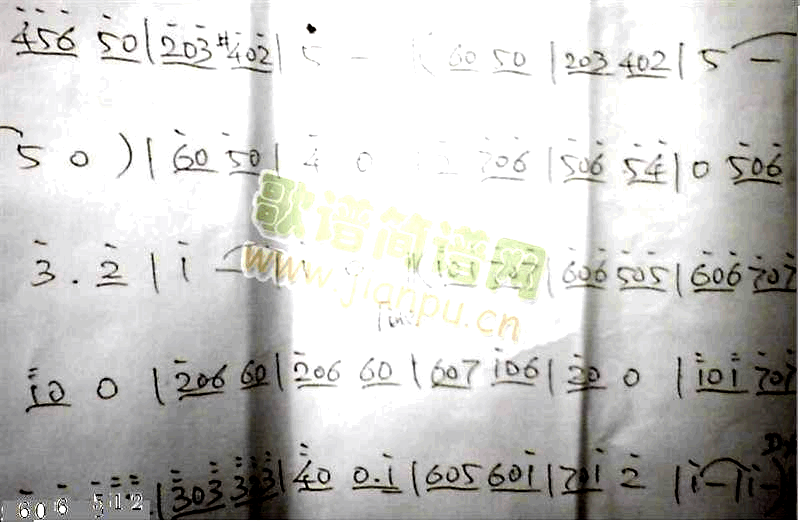 456 50 | 203 #402 | 5 — | 60 50 | 203 402 | 5 —
5 0 ) | 60 50 | 4 0 | 706 | 506 54 | 0 506
3 . 2 | 1 — 101 707 | 606 505 | 606 707
10 0 | 206 60 | 206 60 | 607 106 | 20 0 | 101 707
| 303 333 | 40 0.1 | 605 601 | 701 2 | 1 — | 1 —
606 512
歌谱简谱网
www.jianpu.cn